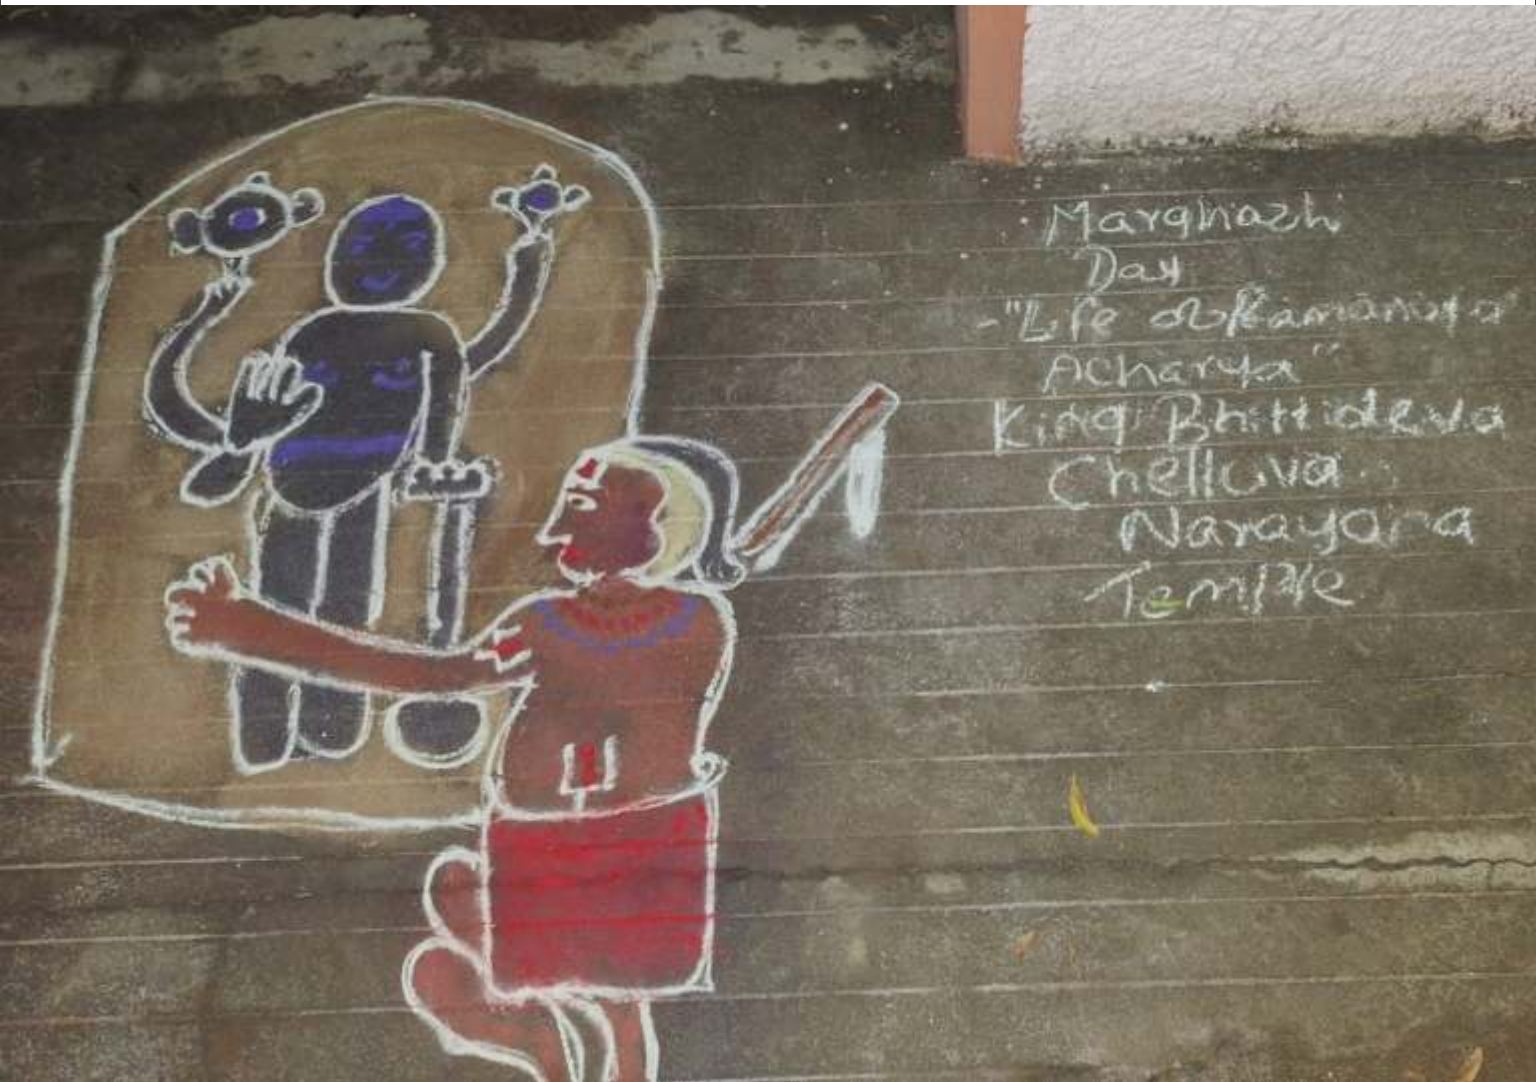 Marghazhi
Day
- "Life of Ramanuja
Acharya"
King Bhittideva
Chelluva
Narayana
Temple